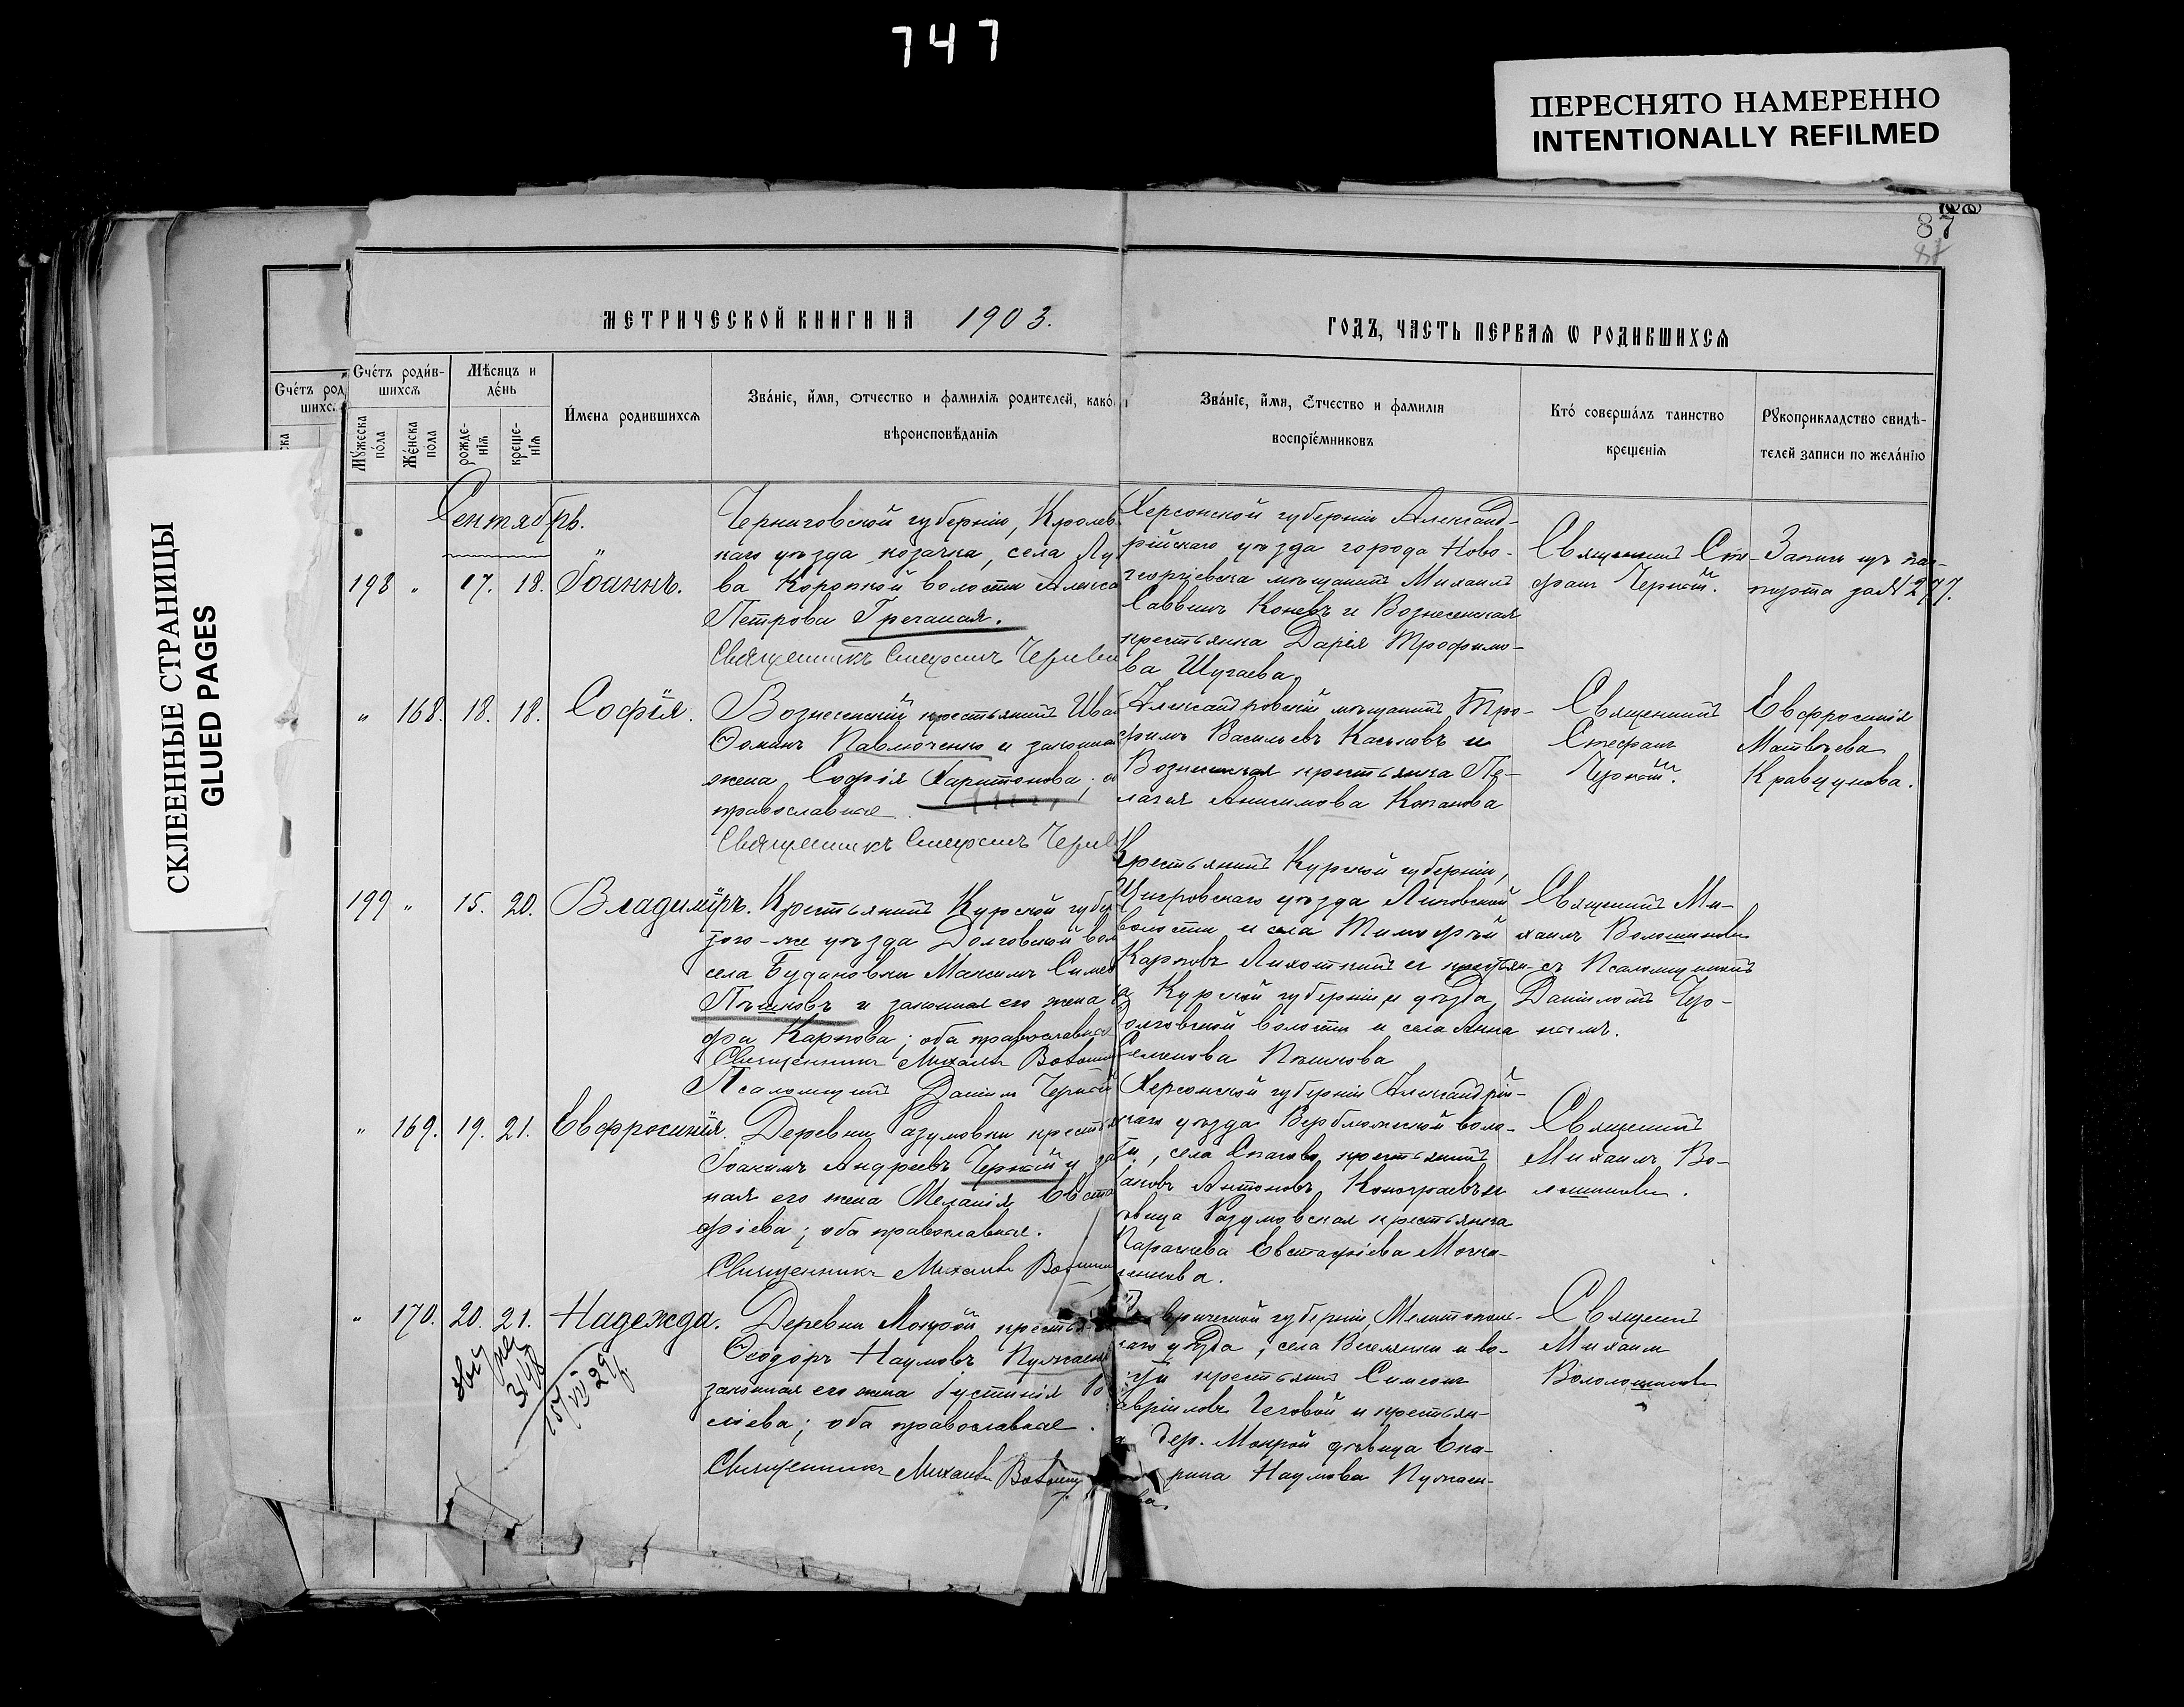 747
ПЕРЕСНЯТО НАМЕРЕННО
INTENTIONALLY REFILMED
87
СКЛЕЕННЫЕ СТРАНИЦЫ
GLUED PAGES
МЕТРИЧЕСКОЙ КНИГИ НА 1903.
ГОДЪ, ЧАСТЬ ПЕРВАѦ Ѡ РОДИВШИХСѦ
Счетъ родив-
шихсѧ
Мужеска
пола
Женска
пола
Мѣсѧцъ и
день
рожде-
нїѧ
креще-
нїѧ
Имена родившихсѧ
Званїе, имѧ, отчество и фамилїѧ родителей, како
вѣроисповѣданїѧ
Званїе, имѧ, отчество и фамилїѧ
воспрїемниковъ
Кто совершалъ таинство
крещенїѧ
Рꙋкоприкладство свидѣ-
телей записи по желанїю
Сентябрь.
198 " 17. 18. Іоаннъ.
Черниговской губерніи, Кролев
каго уѣзда козачка, села Лу
ва Коропкой волости Алекса
Петрова Гречаная.
Священникъ Стефанъ
Херсонской губерніи Александ-
рійскаго уѣзда города Ново-
георгіевска мѣщанинъ Михаилъ
Саввинъ Коневъ и Вознесенская
крестьянка Дарія Трофимо-
ва Шугаева.
Священникъ Сте-
фанъ Черный.
Запись въ пас-
портъ за № 277.
" 168. 18. 18. Софія.
Вознесенскій крестьянинъ Ива
Ѳоминъ Павлюченко и законная
жена Софія Харитонова; о
православные.
Священникъ Стефанъ
Александровскій мѣщанинъ Тро-
фимъ Васильевъ Каськовъ и
Вознесенская крестьянка Пе-
лагея Анисимова Копанова
Священникъ
Стефанъ
Черный.
Евфросинія
Матвѣева
Кравцунова.
199 " 15. 20. Владиміръ.
Крестьянинъ Курской губер
того-же уѣзда Долговской вол
села Будановки Максимъ Симео
Пѣшковъ и законная его жена
фа Карпова; оба православные
Священникъ Михаилъ
Псаломщикъ Даніилъ Черный
Крестьянинъ Курской губерніи,
Щигровскаго уѣзда Липовской
волости и села Тимофей
Карповъ и крестьян-
а Курской губерніи и уѣзда,
Долговской волости и села Анна
Семенова Пѣшкова
Священникъ Ми-
хаилъ Волошиновъ
съ Псаломщикомъ
Даніиломъ Чер-
нымъ.
" 169. 19. 21. Евфросинія.
Деревни Разумовки крестья
Іоакимъ Андреевъ Черный и за
ная его жена Меланія Евста
фіева; оба православные.
Священникъ Михаилъ
Херсонской губерніи Александрій-
скаго уѣзда Верблюжской воло-
ти, села Спасово крестьянинъ
Іаковъ Антоновъ и
дѣвица Разумовская крестьянка
Параскева Евстафіева
Священникъ
Михаилъ Во-
лошиновъ.
" 170. 20. 21. Надежда.
Деревни Мокрой крестья
Ѳеодоръ Наумовъ
законная его жена Іустинія
сіева; оба православные.
Священникъ Михаилъ
врической губерніи, Мелитополь-
скаго уѣзда, села Веселянки и во-
сти крестьянинъ Симеонъ
Гавріиловъ и крестьян-
дер. Мокрой дѣвица Ека-
рина Наумова
ва.
Священникъ
Михаилъ